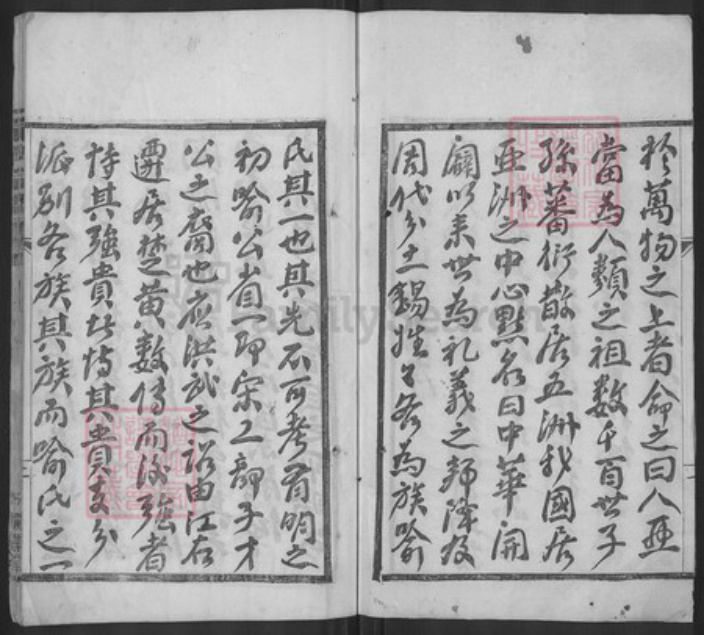 於萬物之上者命之曰人亞
當為人類之祖數千百世子
孫蕃衍散居五洲我國居
亞洲之中心點名曰中華開
闢以來世為礼義之邦降及
周代分土錫姓各為族喻
氏其一也其先不可考有明之
初喻公省一即宋工部子才
公之裔也應洪武之詔由江右
遷居楚黃數傳而後強者
恃其強貴者恃其貴支分
派別各族其族而喻氏之一
FamilySearch